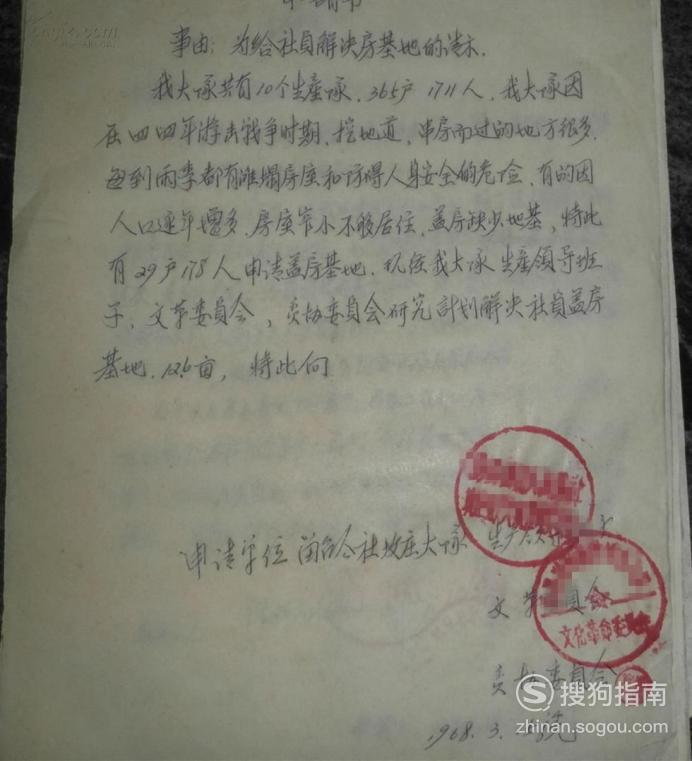 申请书
事由:为给社員解决房基地的请示
我大队共有10个生產队,365户1711人,我大队因
在四四年游击战争时期,挖地道,串房而过的地方很多,
每到雨季都有滩塌房屋和访碍人身安全的危险,有的因
人口逐年增多,房屋窄小不够居住,盖房缺少地基,特此
有29户178人申请盖房基地.现经我大队生產领导班
子、文革委員会,贫协委員会研究計划解决社員盖房
基地.12.6亩,特此向
申请单位 公社 庄大队 生产领
文革 員会
文化革命委員会
贫协委員会
1968.3.
搜狗指南
zhinan.sogou.com